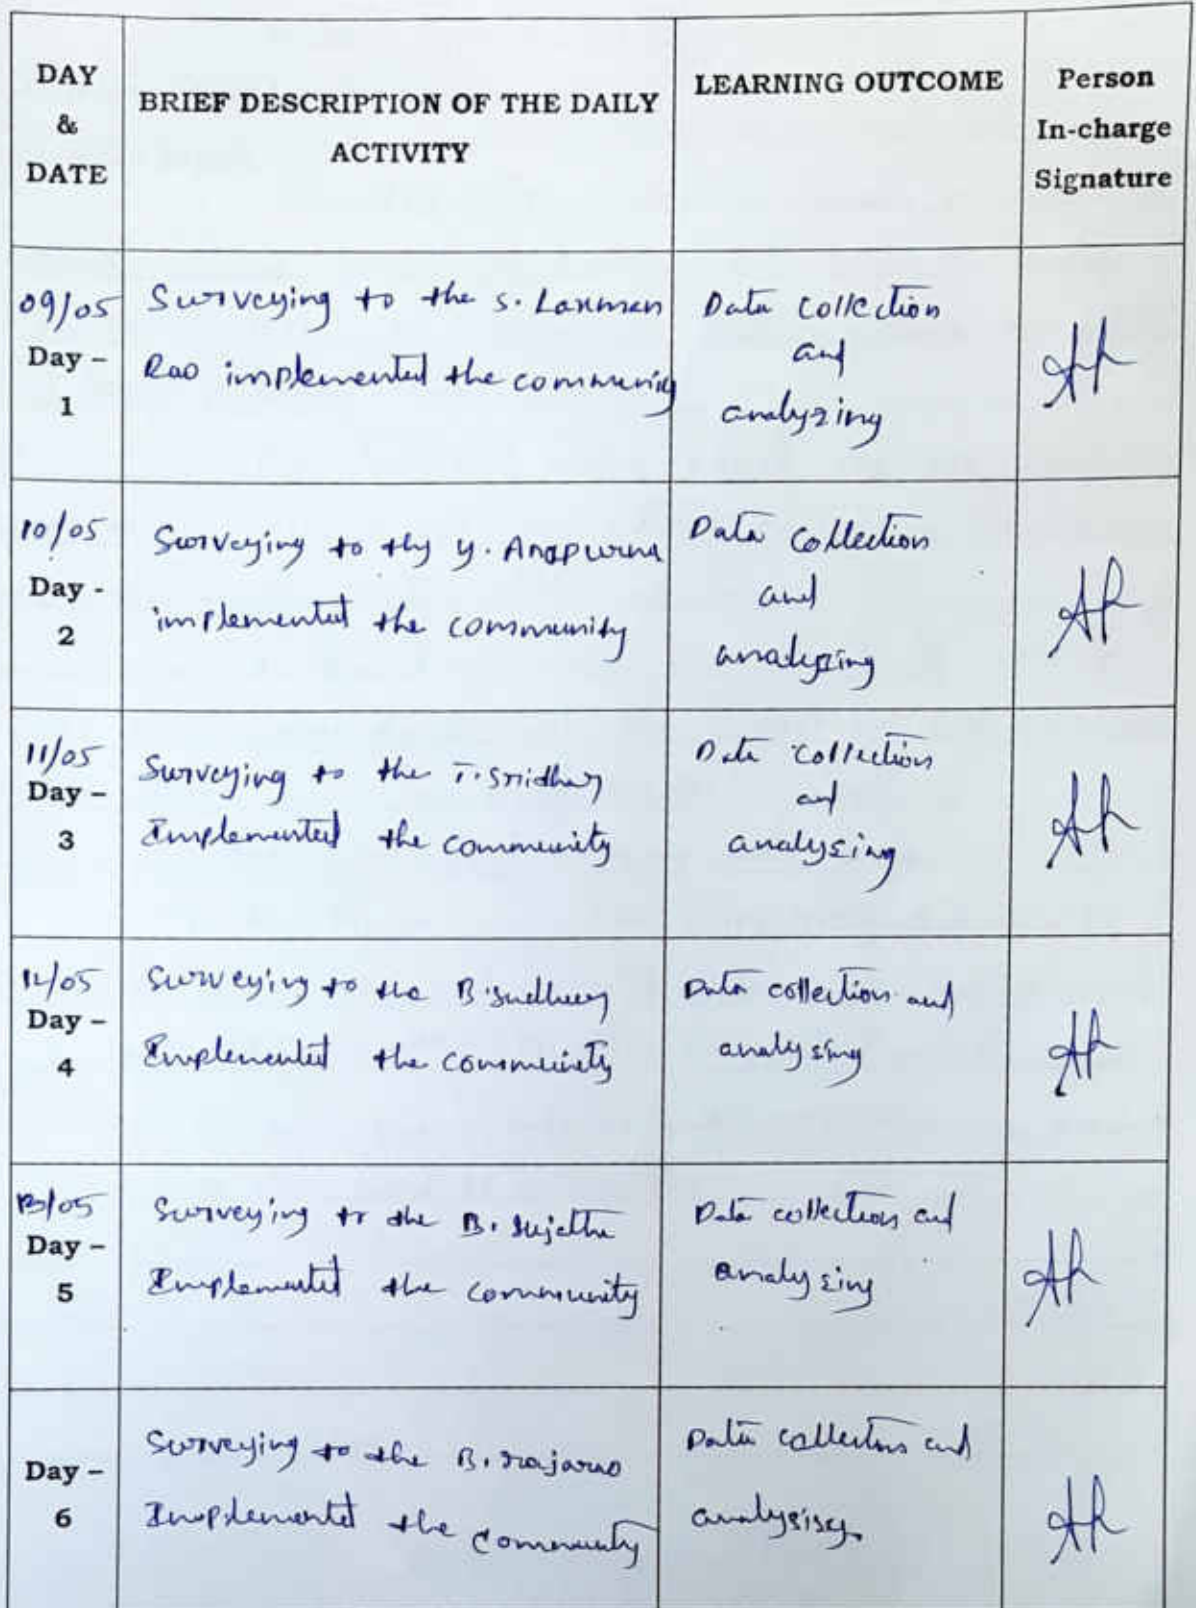 DAY
&
DATE
BRIEF DESCRIPTION OF THE DAILY
ACTIVITY
LEARNING OUTCOME
Person
In-charge
Signature
09/05
Day –
1
Surveying to the S. Laxman
Rao implemented the community
Data collection
and
analyzing
10/05
Day -
2
Surveying to thy Y. Anapurna
implemented the community
Data collection
and
analyzing
11/05
Day –
3
Surveying to the T. Sridhar
Implemented the community
Data collection
and
analysing
12/05
Day –
4
Surveying to the B.
Implemented the community
Data collection and
analysing
13/05
Day –
5
Surveying to the B. Sujatha
Implemented the community
Data collection and
analysing
Day –
6
Surveying to the B. rajarao
Implemented the community
Data collection and